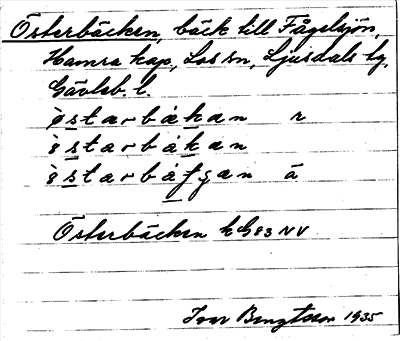 Österbäcken, bäck till Fågelsjön,
Hamra kap, Los sn, Ljusdals tg,
Gävleb. l.
østarbákan r
östarbákan
östarbáfgan ä
Österbäcken hG83 NV
Ivar Bengtsson 1935